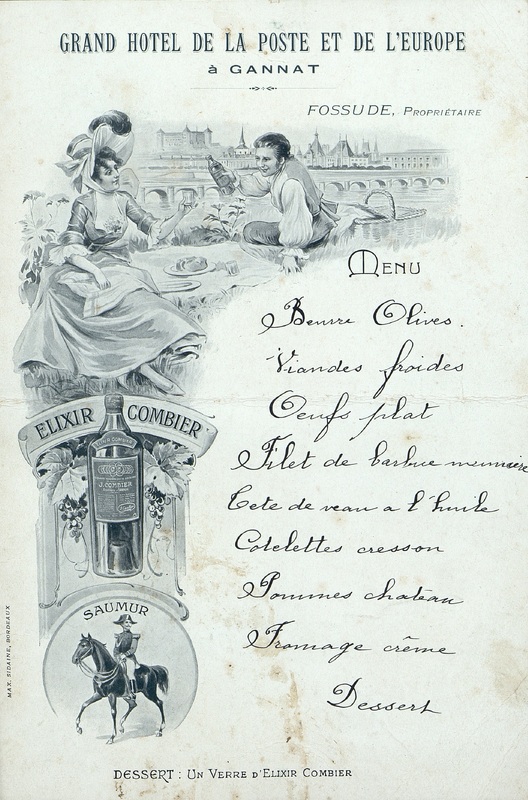 GRAND HOTEL DE LA POSTE ET DE L'EUROPE
à GANNAT
FOSSUDE, PROPRIÉTAIRE
MENU
Beurre Olives.
Viandes froides
Oeufs plat
Filet de barbue meunière
Tete de veau a l'huile
Cotelettes cresson
Pommes chateau
Fromage crême
Dessert
ELIXIR COMBIER
ELIXIR COMBIER
J. COMBIER
SAUMUR
MAX. SIDAINE, BORDEAUX
DESSERT : UN VERRE D'ELIXIR COMBIER